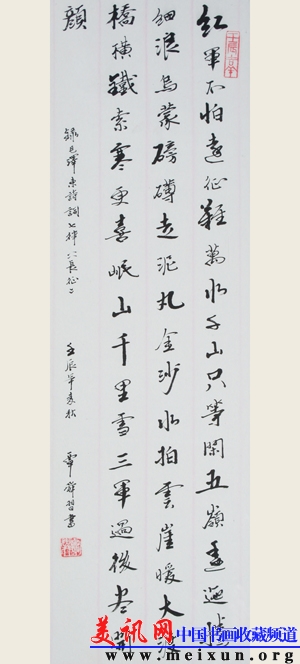 紅軍不怕遠征難萬水千山只等閑五嶺逶迤騰
細浪烏蒙磅礴走泥丸金沙水拍雲崖暖大渡
橋橫鐵索寒更喜岷山千里雪三軍過後盡開
顏
錄毛澤東詩詞七律《長征》
壬辰年
習書
美讯网 中国书画收藏频道
www.meixun.org